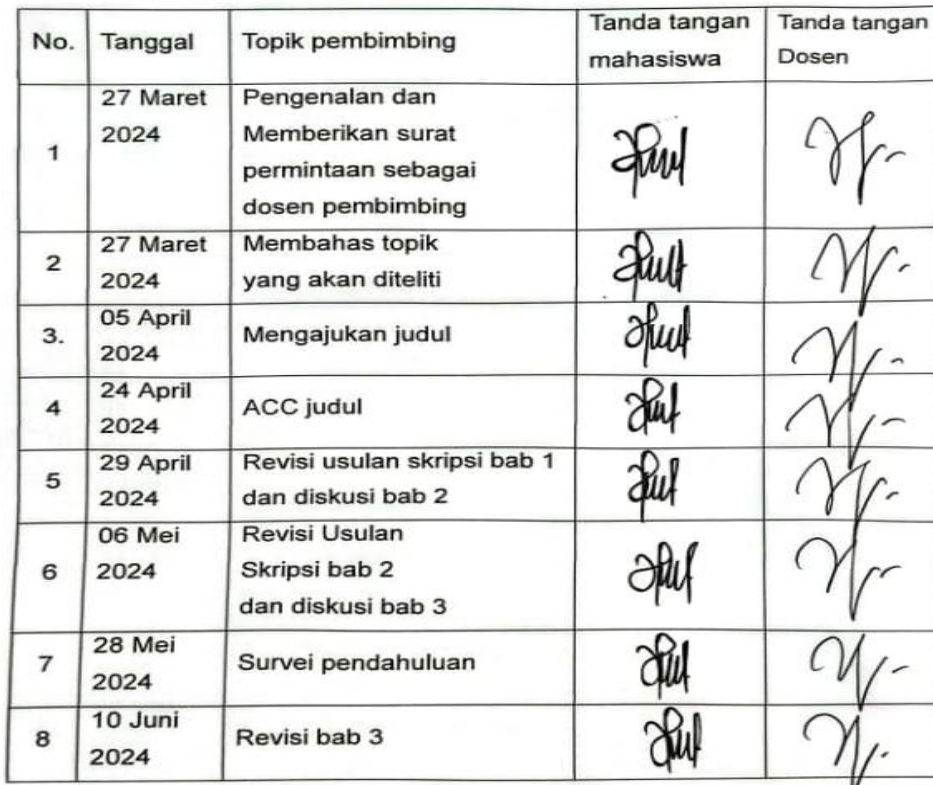 No. Tanggal Topik pembimbing Tanda tangan mahasiswa Tanda tangan Dosen
1 27 Maret 2024 Pengenalan dan Memberikan surat permintaan sebagai dosen pembimbing
2 27 Maret 2024 Membahas topik yang akan diteliti
3. 05 April 2024 Mengajukan judul
4 24 April 2024 ACC judul
5 29 April 2024 Revisi usulan skripsi bab 1 dan diskusi bab 2
6 06 Mei 2024 Revisi Usulan Skripsi bab 2 dan diskusi bab 3
7 28 Mei 2024 Survei pendahuluan
8 10 Juni 2024 Revisi bab 3